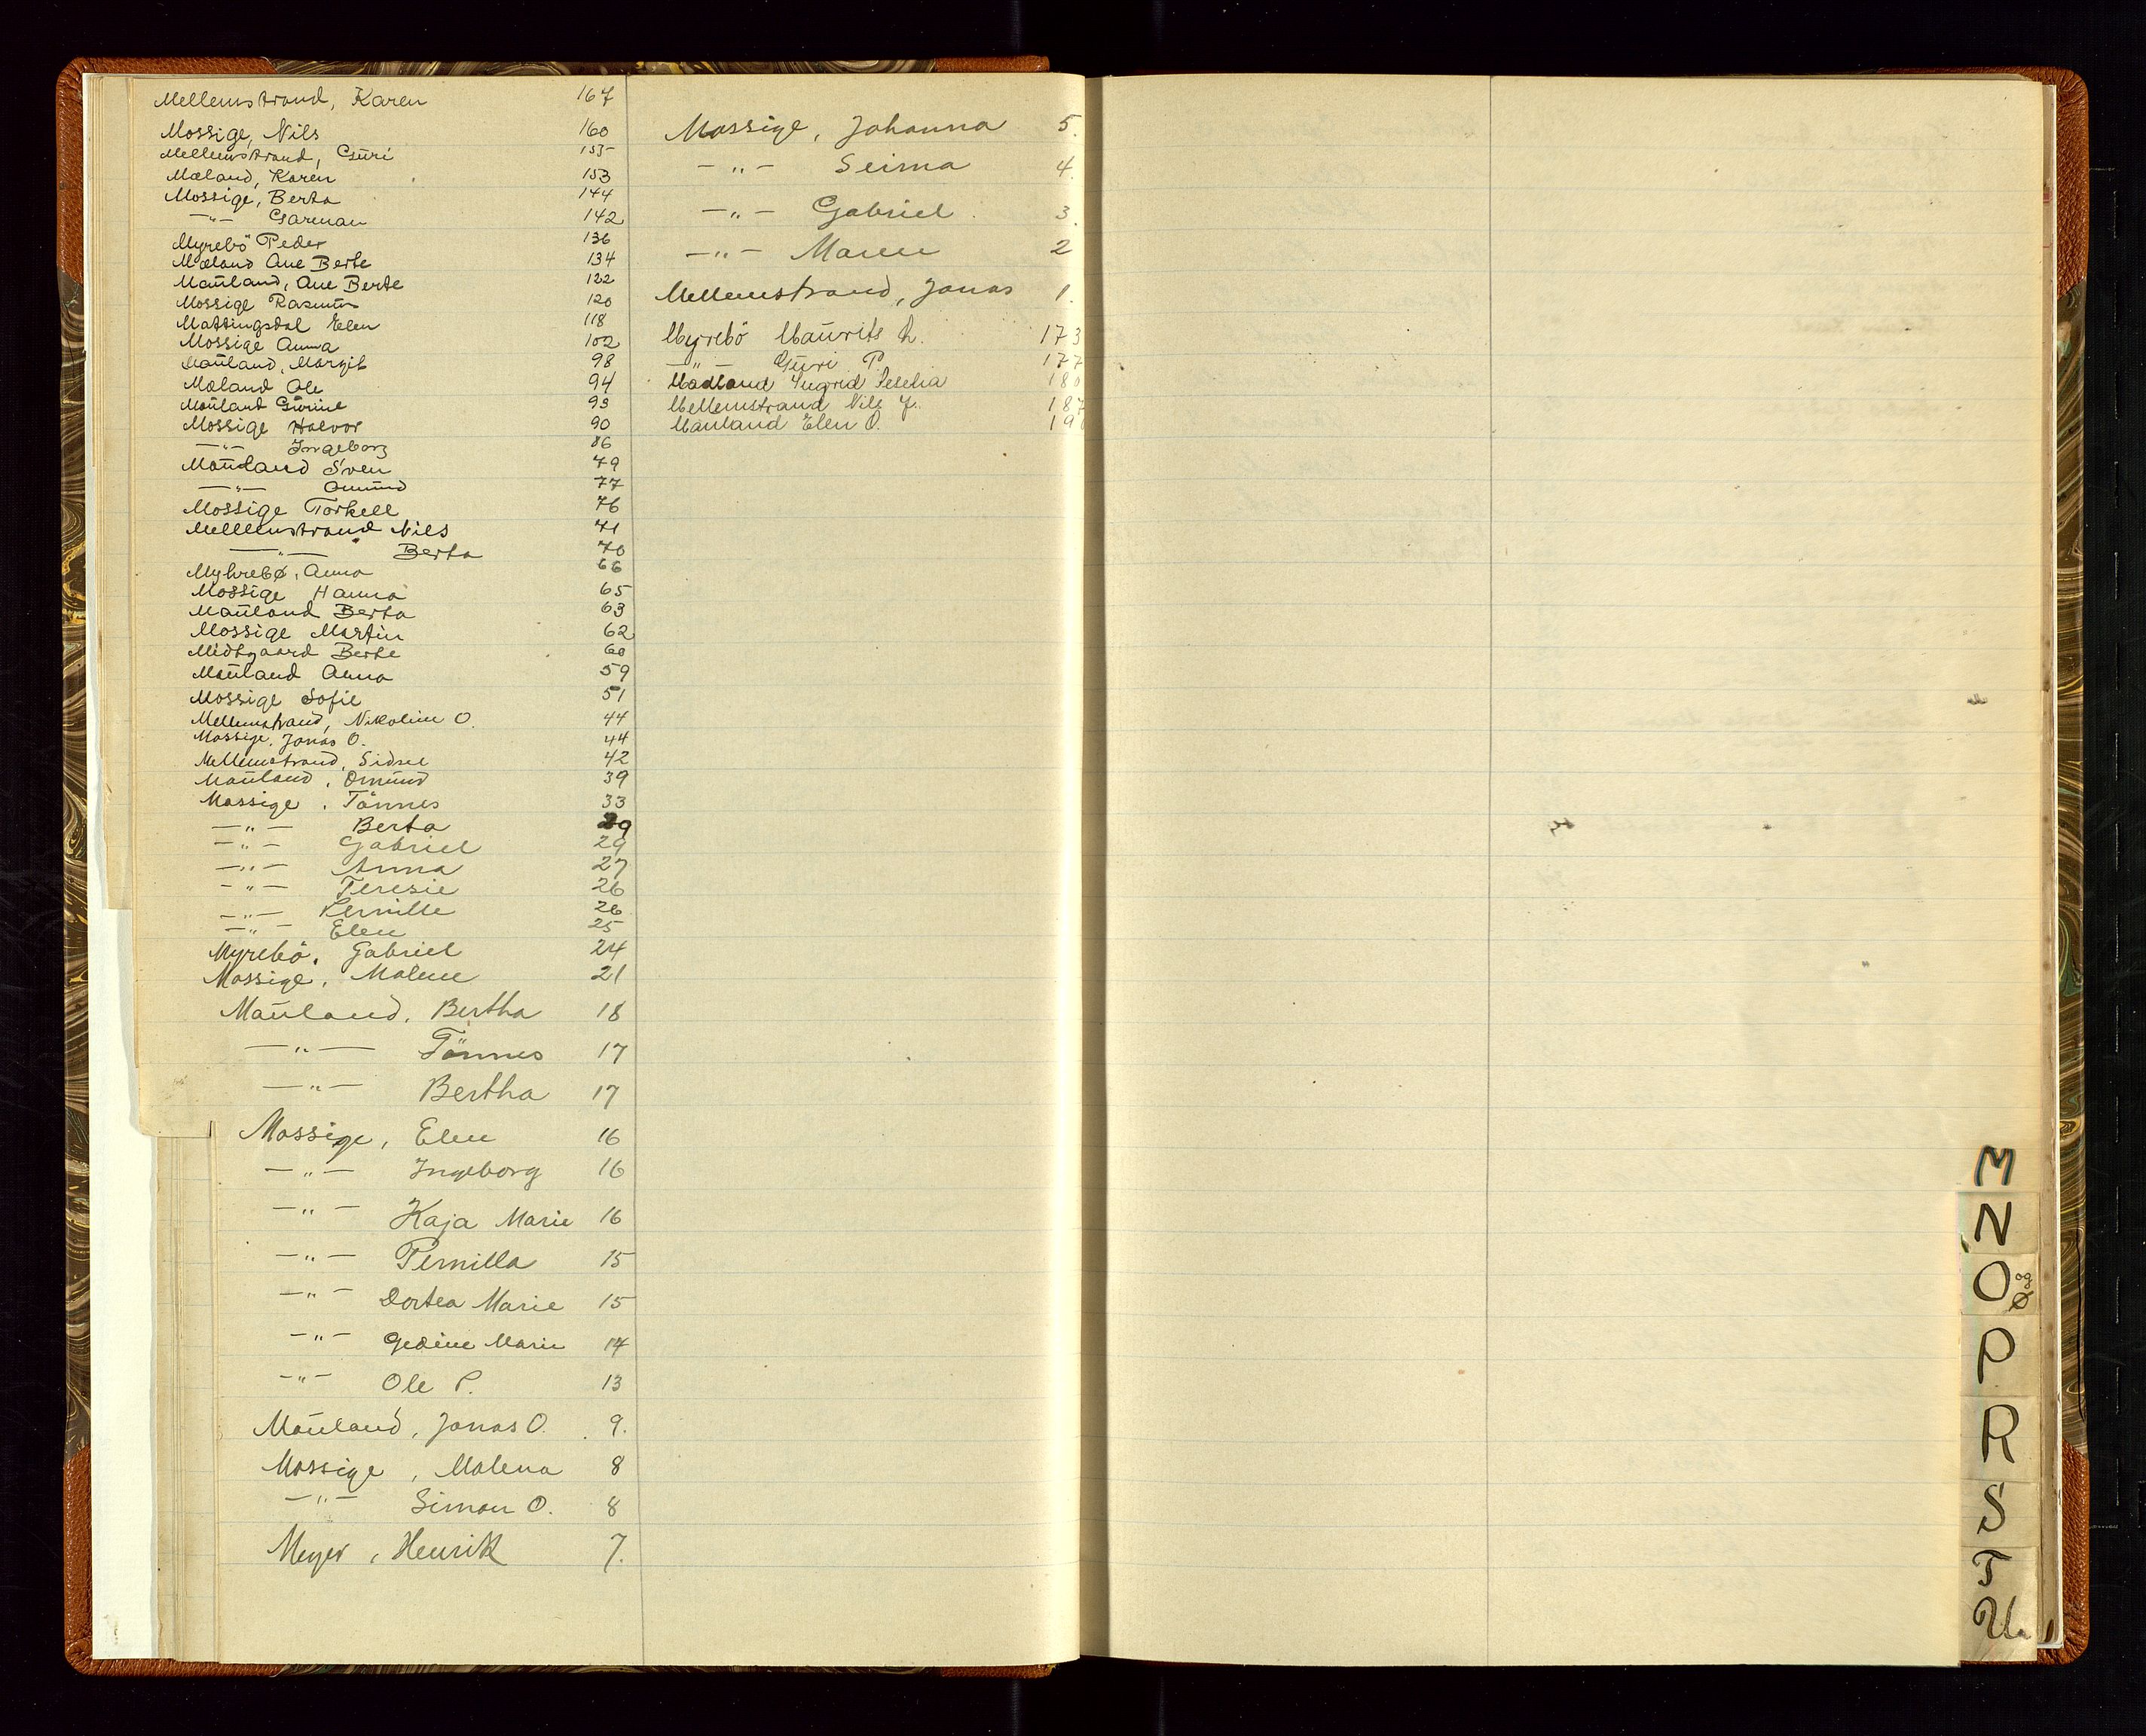 Mellemstrand, Karen 167
Mossige, Nils 160
Mellemstrand, Guri 155
Mæland, Karen 153
Mossige, Berta 144
—"— Garman 142
Myrebö Peder 136
Mæland Ane Berte 134
Mauland, Ane Berte 122
Mossige Rasmus 120
Matningsdal Elen 118
Mossige Anna 102
Mauland, Margit 98
Mæland Ole 94
Mauland Gurine 93
Mossige Halvor 90
—"— Ingeborg 86
Mauland Sven 79
—"— Omund 77
Mossige Torkell 76
Mellemstrand Nils 71
—"— Berta 70
Myhrebø, Anna 66
Mossige Hanna 65
Mauland Berta 63
Mossige Martin 62
Midtgaard Berte 60
Mauland Anna 59
Mossige Sofie 51
Mellemstrand, Nikoline O. 44
Mossige, Jonas O. 44
Mellemstrand, Sidsel 42
Mauland, Omund 39
Mossige, Tönnes 33
—"— Berta 29
—"— Gabriel 29
—"— Anna 27
—"— Teresie 26
—"— Pernille 26
—"— Elen 25
Myrebö, Gabriel 24
Mossige, Malene 21
Mauland, Bertha 18
—"— Tönnes 17
—"— Bertha 17
Mossige, Elen 16
—"— Ingeborg 16
—"— Kaja Marie 16
—"— Pernilla 15
—"— Dortea Marie 15
—"— Gesine Marie 14
—"— Ole P. 13
Mauland, Jonas O. 9.
Mossige, Malena 8
—"— Simon O. 8
Meyer, Henrik 7.
Mossige, Johanna 5.
—"— Seima 4.
—"— Gabriel 3.
—"— Maren 2
Mellemstrand, Jonas 1.
Myrebö Maurits L. 173
—"— Guri P. 177
Madland Ingrid 180
Mellemstrand Nils J. 187
Mauland Elen O. 19
M
N
O Ö
Ø
P
R
S
T
U